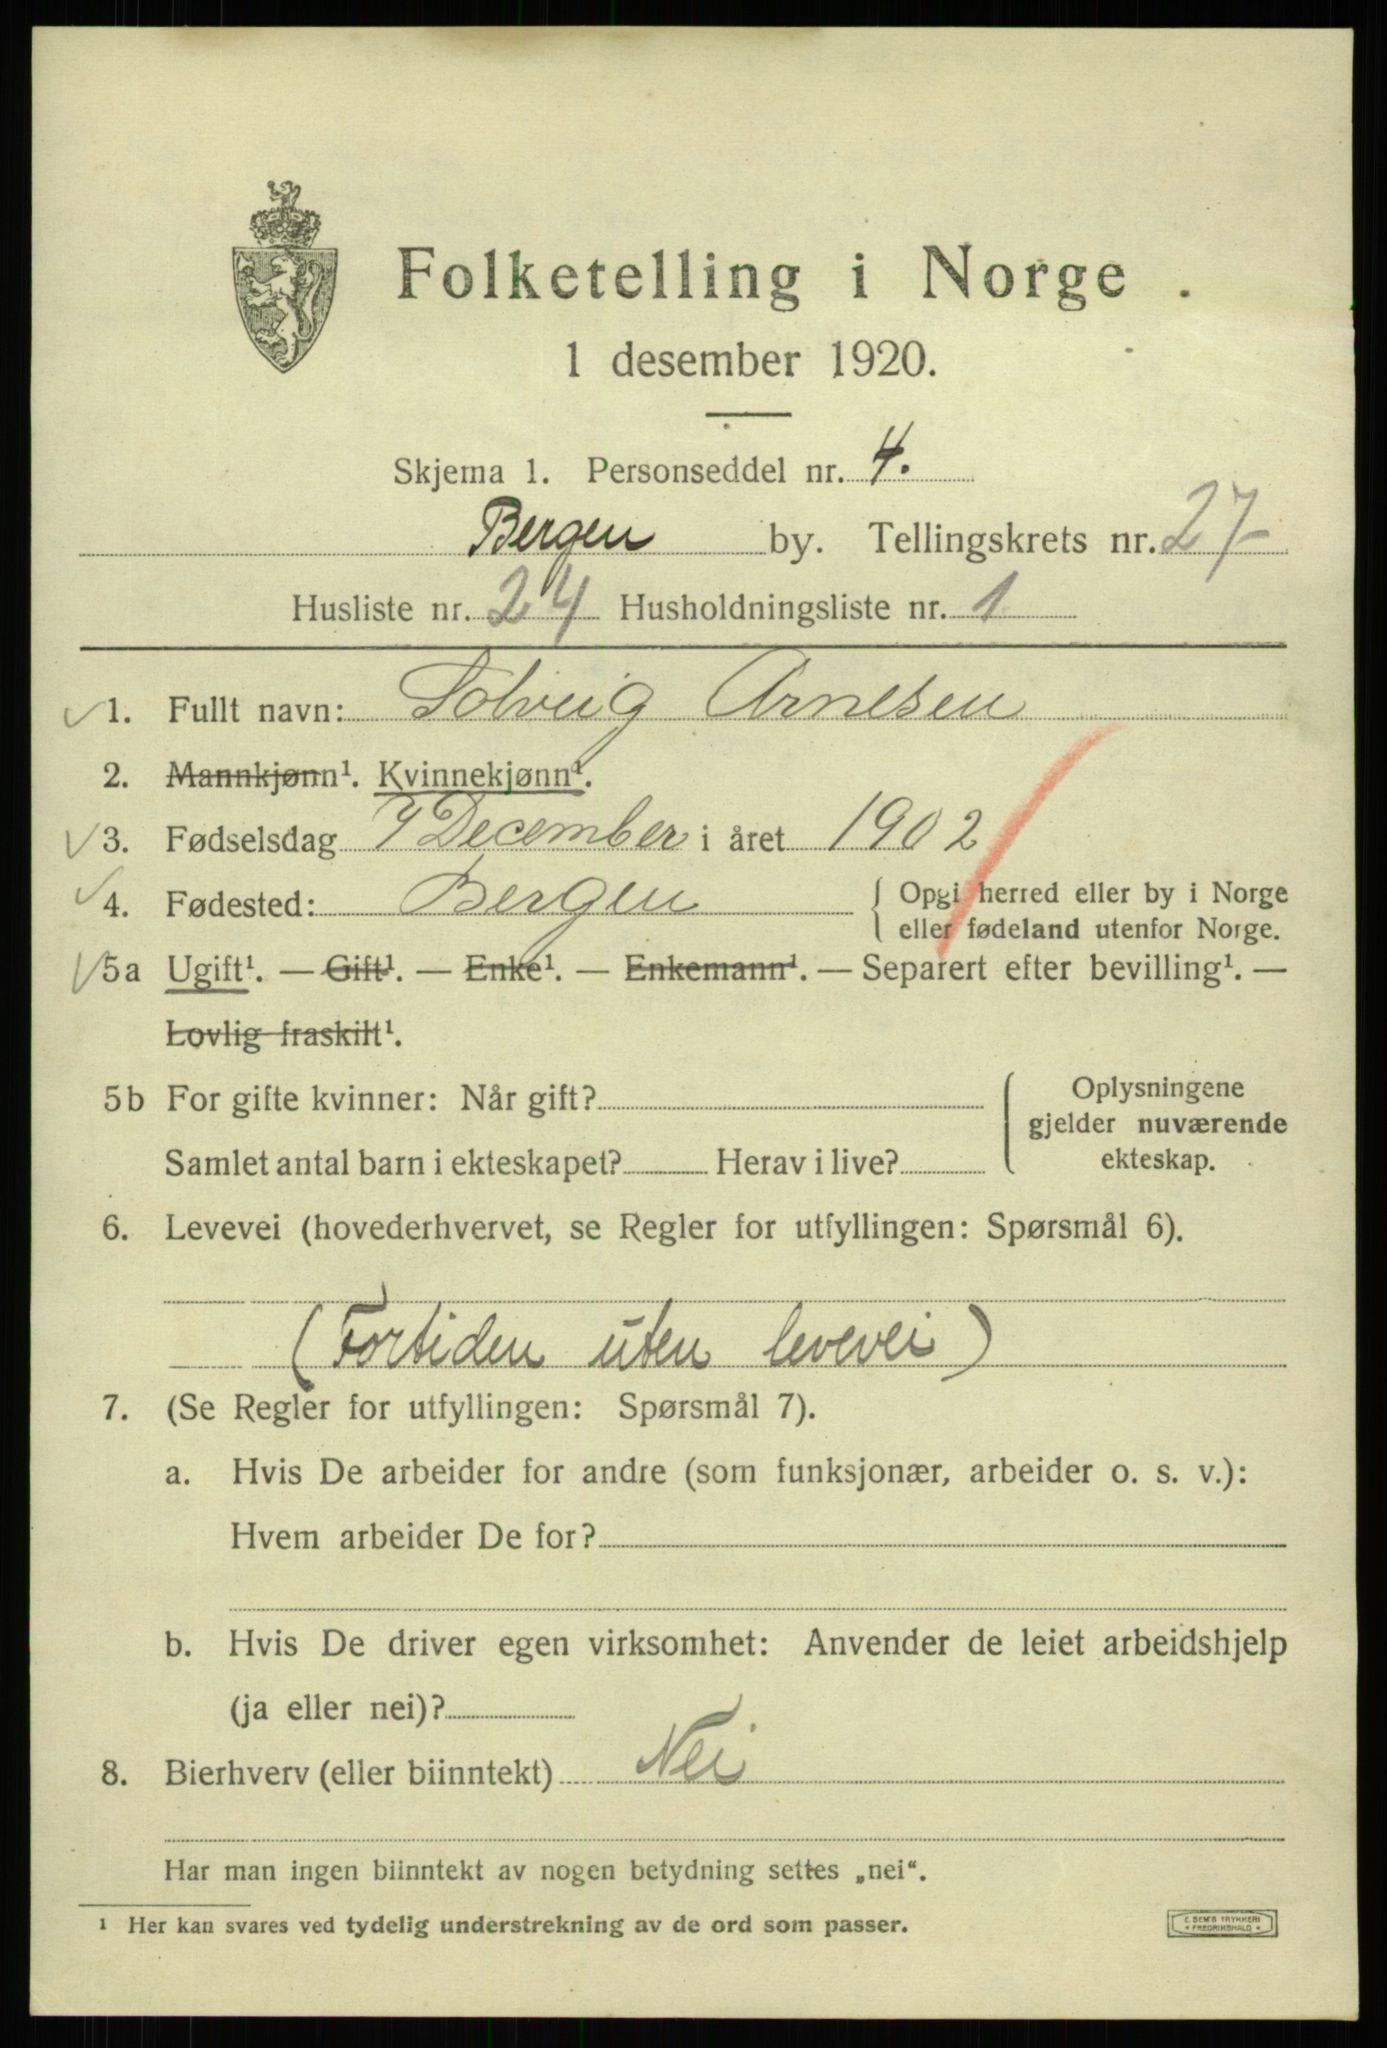 Folketelling i Norge
1 desember 1920.
Skjema 1. Personseddel nr. 4.
Bergen by. Tellingskrets nr. 27
Husliste nr. 24 Husholdningsliste nr. 1
1. Fullt navn: Solveig Arnesen
2. Mannkjønn¹. Kvinnekjønn¹.
3. Fødselsdag 7 December i året 1902
4. Fødested: Bergen { Opgi herred eller by i Norge
eller fødeland utenfor Norge.
5a Ugift¹. — Gift¹. — Enke¹. — Enkemann¹. — Separert efter bevilling¹. —
Lovlig fraskilt¹.
5b For gifte kvinner: Når gift? { Oplysningene
gjelder nuværende
Samlet antal barn i ekteskapet? Herav i live? ekteskap.
6. Levevei (hovederhvervet, se Regler for utfyllingen: Spørsmål 6).
(Fortiden uten levevei)
7. (Se Regler for utfyllingen: Spørsmål 7).
a. Hvis De arbeider for andre (som funksjonær, arbeider o. s. v.):
Hvem arbeider De for?
b. Hvis De driver egen virksomhet: Anvender de leiet arbeidshjelp
(ja eller nei)?
8. Bierhverv (eller biinntekt) Nei
Har man ingen biinntekt av nogen betydning settes „nei“.
¹ Her kan svares ved tydelig understrekning av de ord som passer.
E. SEM'S TRYKKERI
FREDRIKSHALD